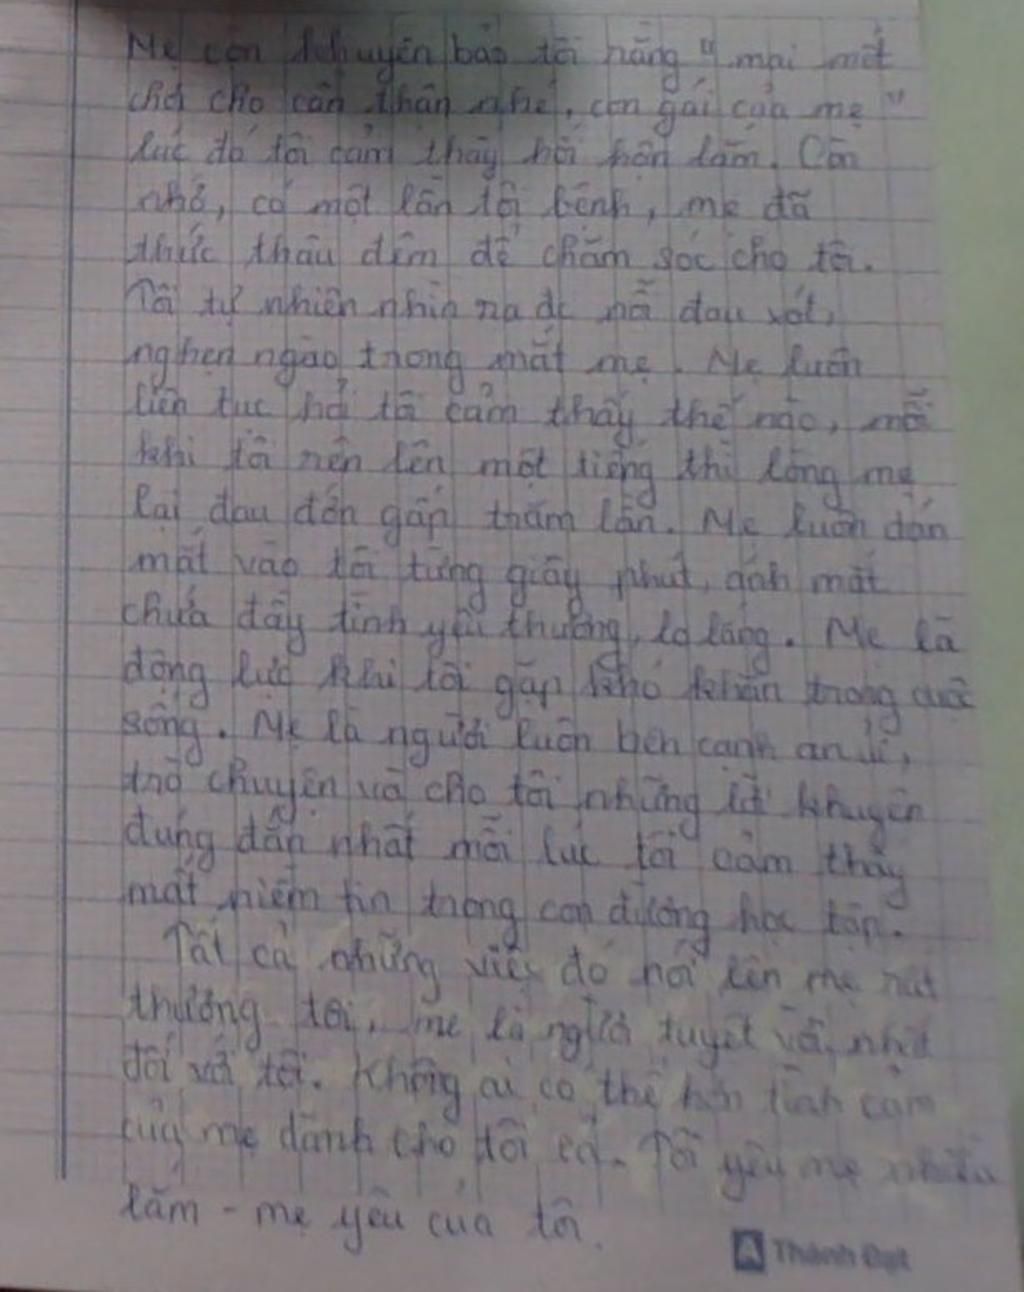 Mẹ còn khuyên bảo tôi rằng "mai mốt
chơi cho cẩn thận nhé, con gái của mẹ"
lúc đó tôi cảm thấy hối hận lắm. Còn
nhớ, có một lần tôi bệnh, mẹ đã
thức thâu đêm để chăm sóc cho tôi.
Tôi tự nhiên nhìn ra đc nỗi đau xót,
nghẹn ngào trong mắt mẹ. Mẹ luôn
liên tục hỏi tôi cảm thấy thế nào, mỗi
khi tôi rên lên một tiếng thì lòng mẹ
lại đau đớn gấp trăm lần. Mẹ luôn dán
mắt vào tôi từng giây phút, ánh mắt
chứa đầy tình yêu thương, lo lắng. Mẹ là
động lực khi tôi gặp khó khăn trong cuộc
sống. Mẹ là người luôn bên cạnh an ủi,
trò chuyện và cho tôi những lời khuyên
đúng đắn nhất mỗi lúc tôi cảm thấy
mất niềm tin trong con đường học tập.
Tất cả những việc đó nói lên mẹ rất
thương tôi, mẹ là người tuyệt vời nhất
đối với tôi. Không ai có thể hơn tình cảm
của mẹ dành cho tôi cả. Tôi yêu mẹ nhiều
lắm - mẹ yêu của tôi.
Thành Đạt